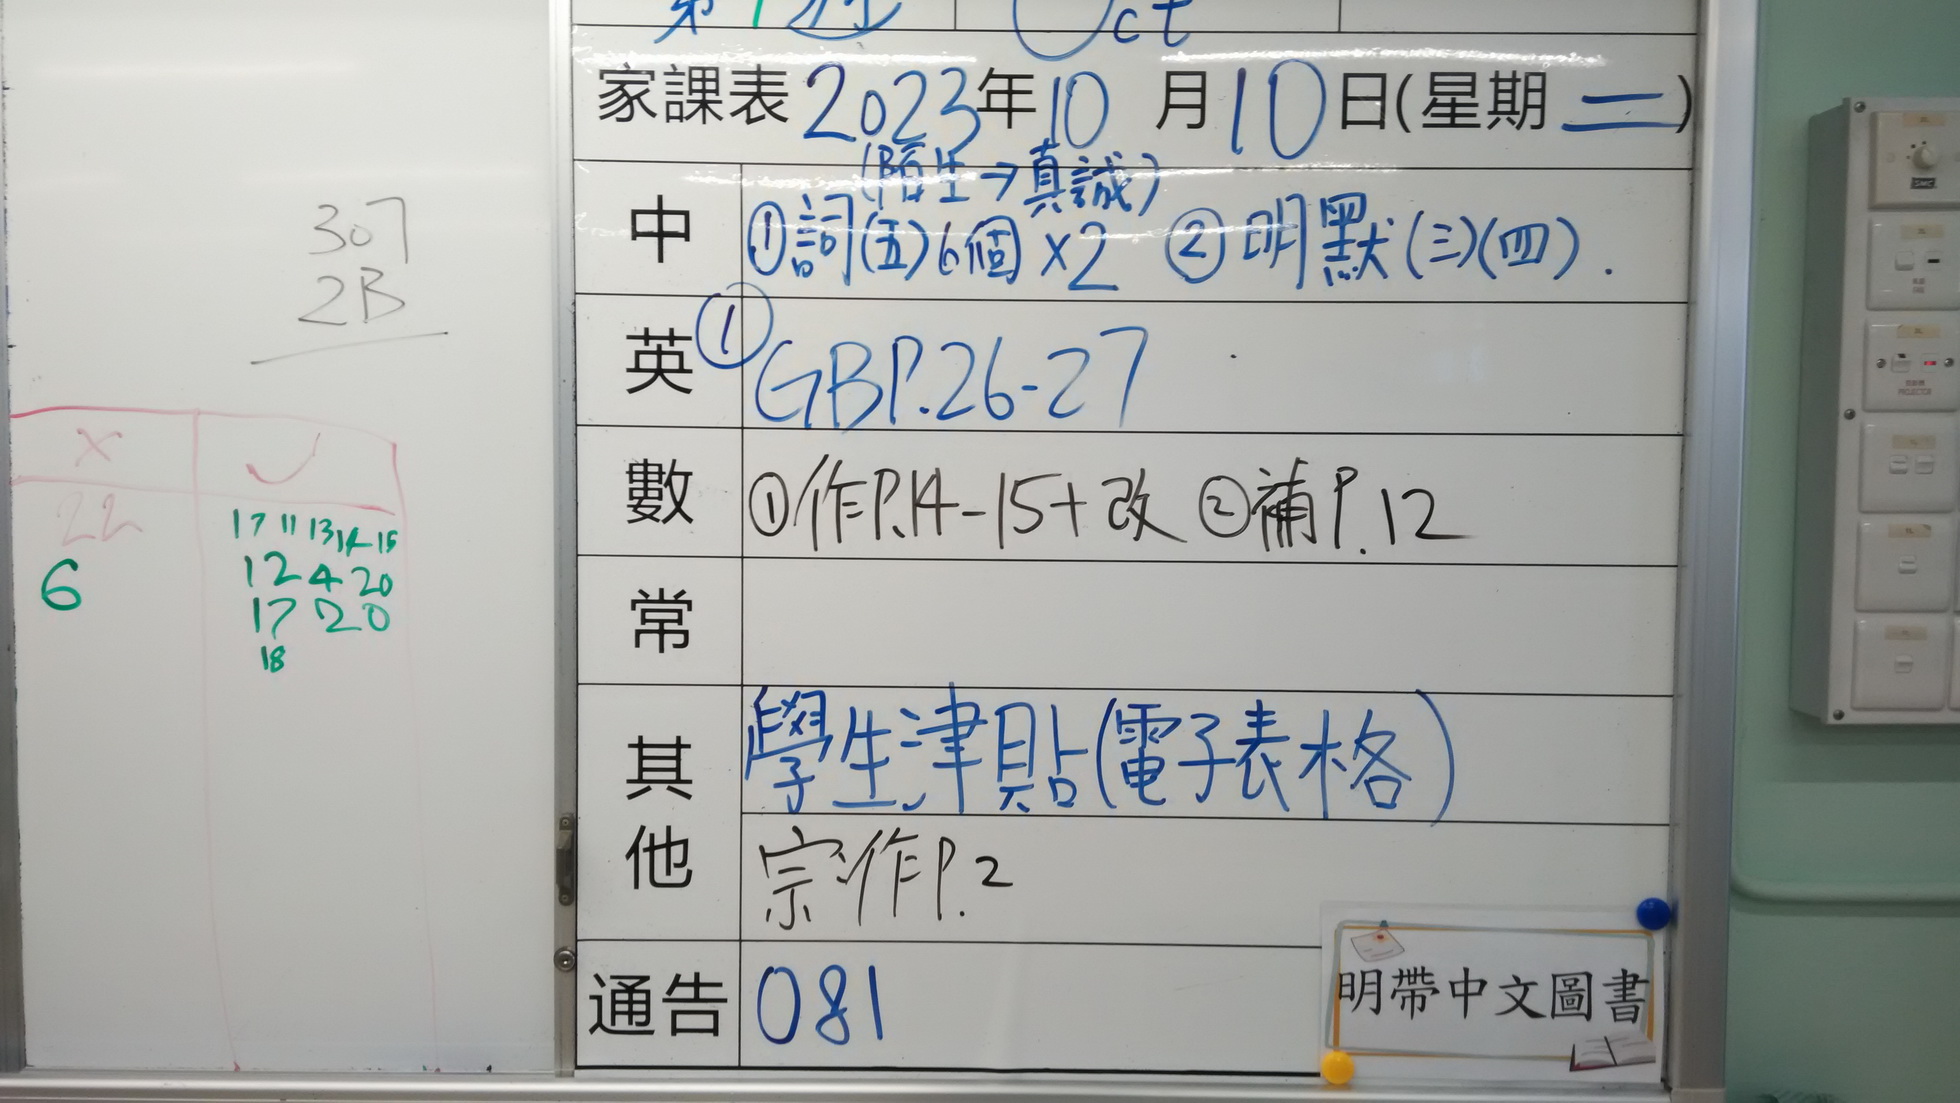 307
2B
× ✓
22
17 11 13 14 15
6
12 4 20
17 20
18
Oct
家課表2023年10月10日(星期二)
(陌生→真誠)
中 ①詞(五)6個×2 ②明默(三)(四).
英 ①GBP.26-27
數 ①作P.14-15+改 ②補P.12
常
其他 學生津貼(電子表格)
宗:作P.2
通告 081
明帶中文圖書
PROJECTOR